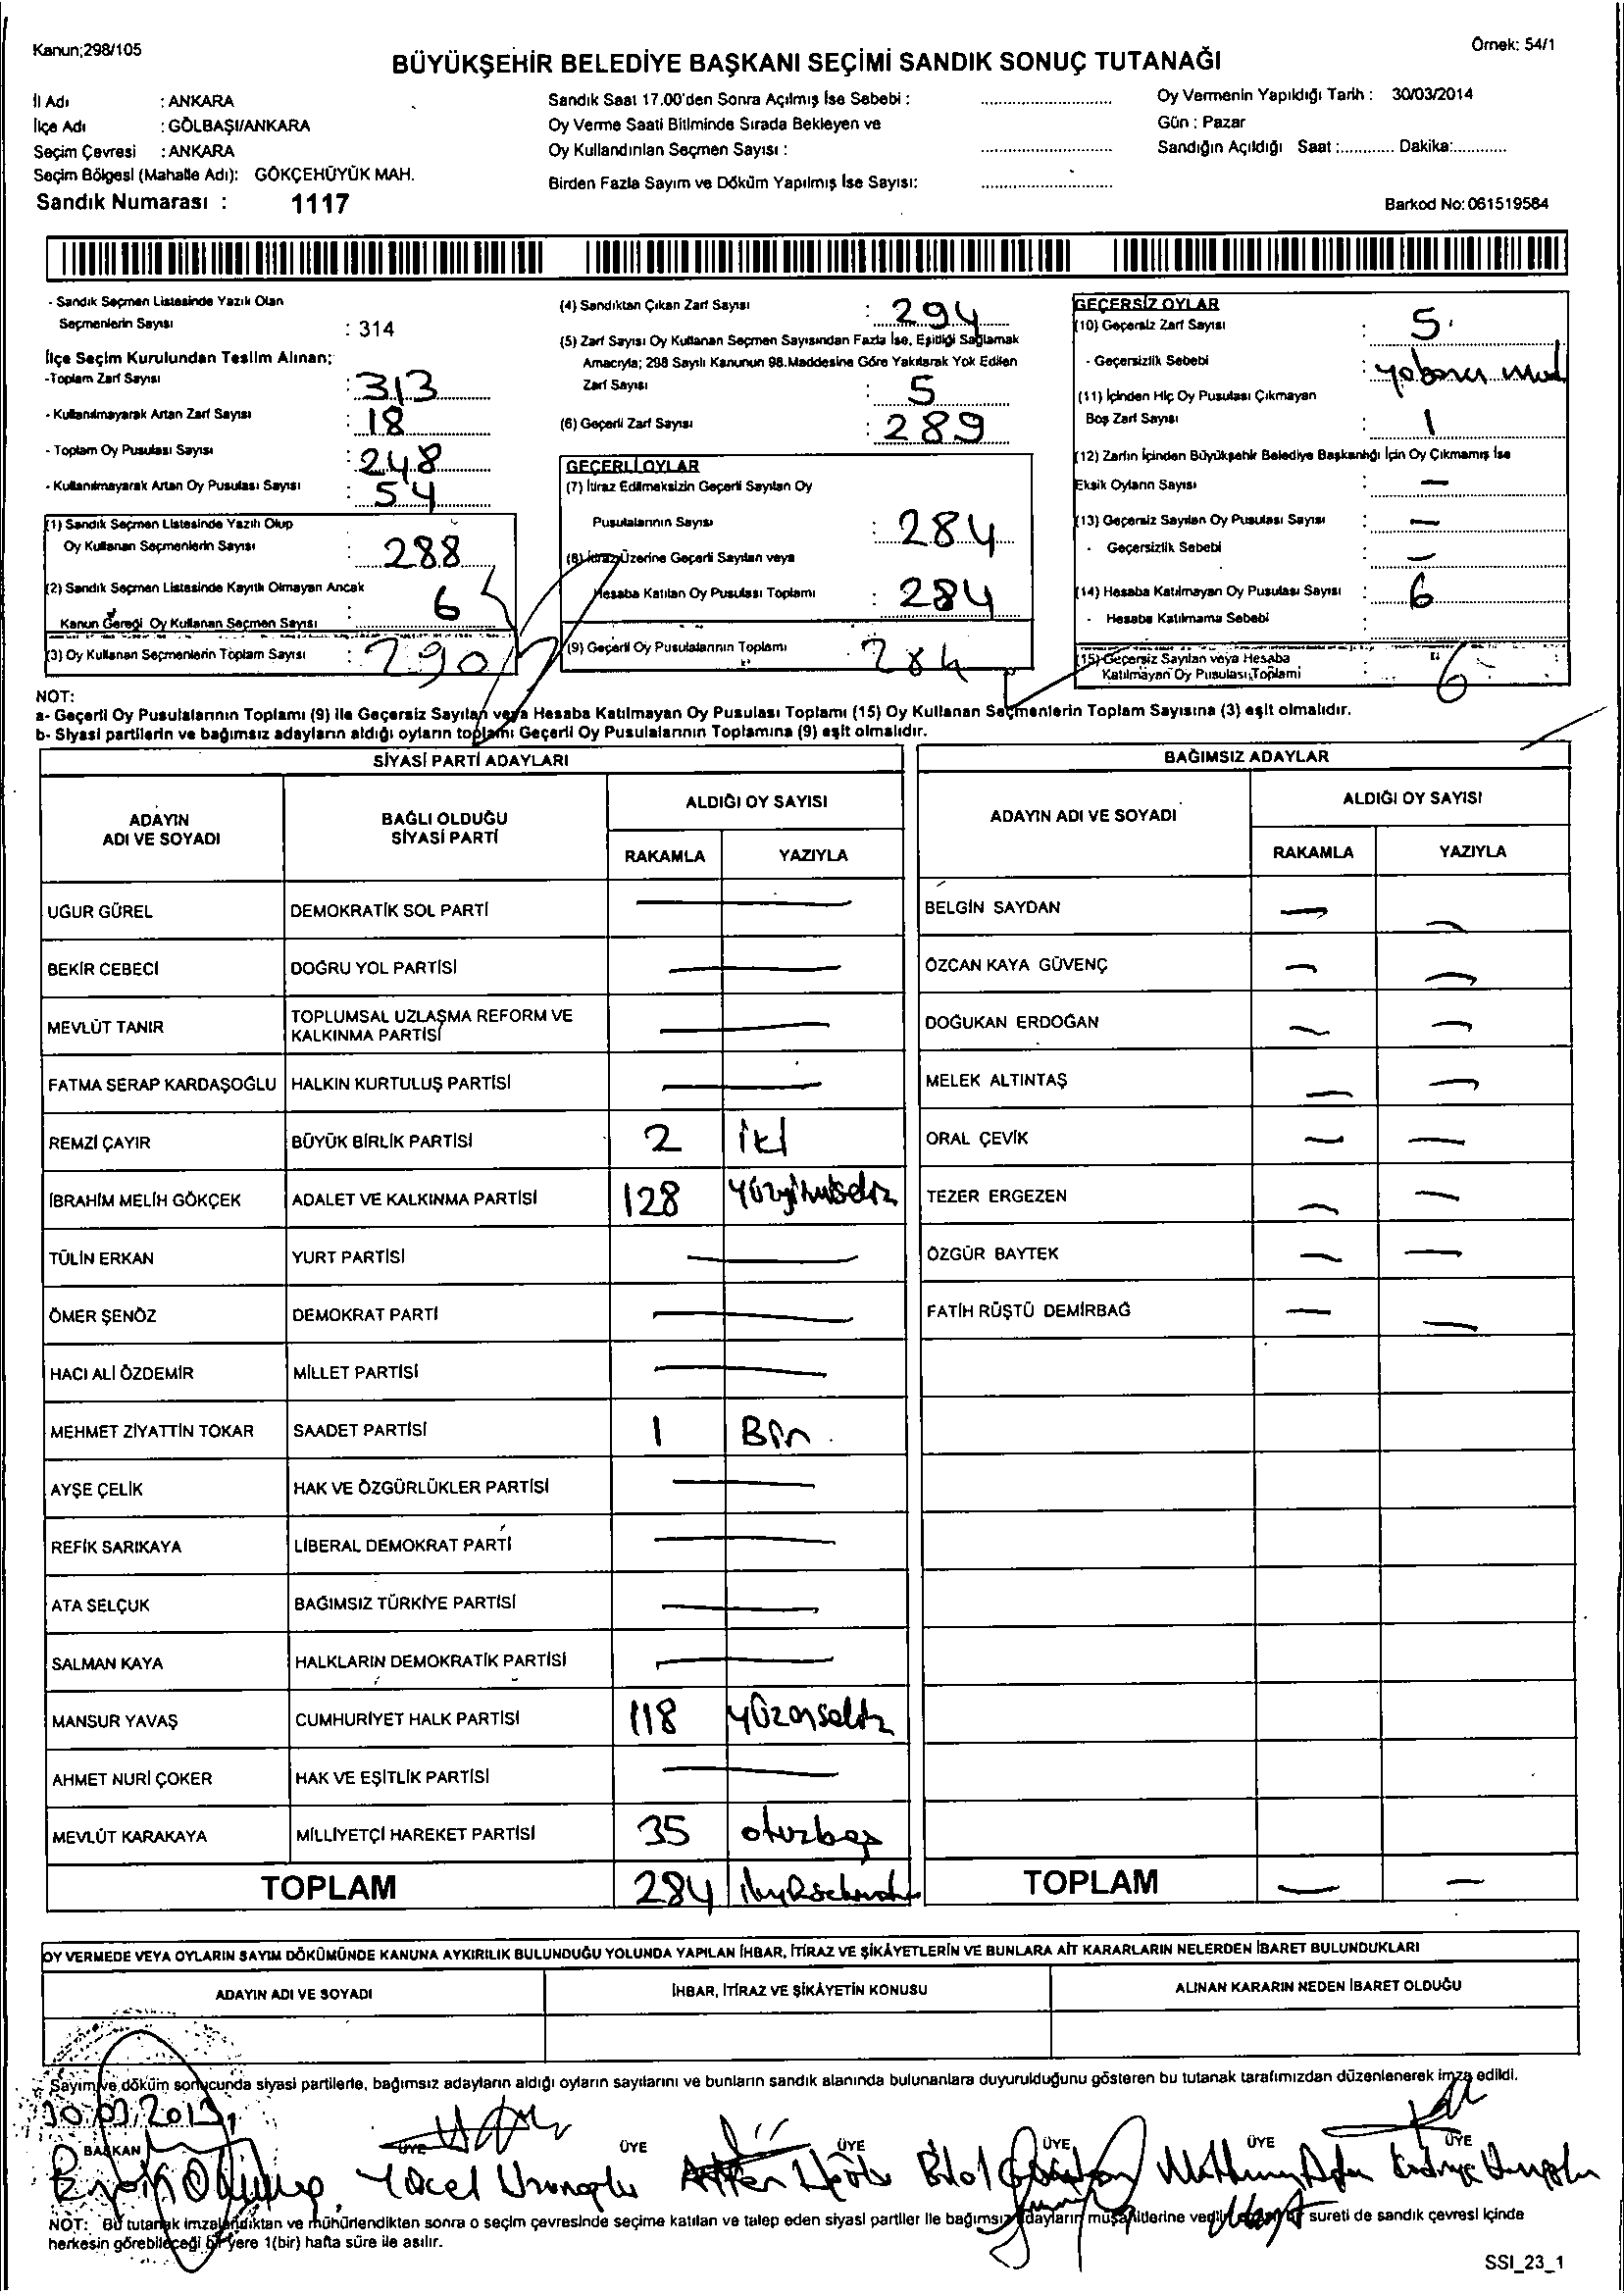 Kanun;298/105
Örnek: 54/1
BÜYÜKŞEHİR BELEDİYE BAŞKANI SEÇİMİ SANDIK SONUÇ TUTANAĞI
İl Adı : ANKARA
İlçe Adı : GÖLBAŞI/ANKARA
Seçim Çevresi : ANKARA
Seçim Bölgesi (Mahalle Adı): GÖKÇEHÜYÜK MAH.
Sandık Numarası : 1117
Sandık Saat 17.00'den Sonra Açılmış İse Sebebi :
Oy Verme Saati Bitiminde Sırada Bekleyen ve
Oy Kullandırılan Seçmen Sayısı :
Birden Fazla Sayım ve Döküm Yapılmış İse Sayısı:
Oy Vermenin Yapıldığı Tarih : 30/03/2014
Gün : Pazar
Sandığın Açıldığı Saat :............ Dakika:...........
Barkod No: 061519584
- Sandık Seçmen Listesinde Yazılı Olan
Seçmenlerin Sayısı : 314
İlçe Seçim Kurulundan Teslim Alınan;
-Toplam Zarf Sayısı : 313
- Kullanılmayarak Artan Zarf Sayısı : 18
- Toplam Oy Pusulası Sayısı : 248
- Kullanılmayarak Artan Oy Pusulası Sayısı : 54
(1) Sandık Seçmen Listesinde Yazılı Olup
Oy Kullanan Seçmenlerin Sayısı : 288
(2) Sandık Seçmen Listesinde Kayıtlı Olmayan Ancak
Kanun Gereği Oy Kullanan Seçmen Sayısı : 6
(3) Oy Kullanan Seçmenlerin Toplam Sayısı : 290
(4) Sandıktan Çıkan Zarf Sayısı : 294
(5) Zarf Sayısı Oy Kullanan Seçmen Sayısından Fazla İse, Eşitliği Sağlamak
Amacıyla; 298 Sayılı Kanunun 98.Maddesine Göre Yakılarak Yok Edilen
Zarf Sayısı : 5
(6) Geçerli Zarf Sayısı : 289
GEÇERLİ OYLAR
(7) İtiraz Edilmeksizin Geçerli Sayılan Oy
Pusulalarının Sayısı : 284
(8) İtiraz Üzerine Geçerli Sayılan veya
Hesaba Katılan Oy Pusulası Toplamı : 284
(9) Geçerli Oy Pusulalarının Toplamı : 284
GEÇERSİZ OYLAR
(10) Geçersiz Zarf Sayısı : 5
- Geçersizlik Sebebi : yabancı
(11) İçinden Hiç Oy Pusulası Çıkmayan
Boş Zarf Sayısı : 1
(12) Zarfın İçinden Büyükşehir Belediye Başkanlığı İçin Oy Çıkmamış İse
Eksik Oyların Sayısı : —
(13) Geçersiz Sayılan Oy Pusulası Sayısı : —
- Geçersizlik Sebebi : —
(14) Hesaba Katılmayan Oy Pusulası Sayısı : 6
- Hesaba Katılmama Sebebi :
(15) Geçersiz Sayılan veya Hesaba
Katılmayan Oy Pusulası Toplamı : 6
NOT:
a- Geçerli Oy Pusulalarının Toplamı (9) ile Geçersiz Sayılan veya Hesaba Katılmayan Oy Pusulası Toplamı (15) Oy Kullanan Seçmenlerin Toplam Sayısına (3) eşit olmalıdır.
b- Siyasi partilerin ve bağımsız adayların aldığı oyların toplamı Geçerli Oy Pusulalarının Toplamına (9) eşit olmalıdır.
SİYASİ PARTİ ADAYLARI
ADAYIN
ADI VE SOYADI
BAĞLI OLDUĞU
SİYASİ PARTİ
ALDIĞI OY SAYISI
RAKAMLA YAZIYLA
UĞUR GÜREL DEMOKRATİK SOL PARTİ —
BEKİR CEBECİ DOĞRU YOL PARTİSİ —
MEVLÜT TANIR TOPLUMSAL UZLAŞMA REFORM VE
KALKINMA PARTİSİ —
FATMA SERAP KARDAŞOĞLU HALKIN KURTULUŞ PARTİSİ —
REMZİ ÇAYIR BÜYÜK BİRLİK PARTİSİ 2 iki
İBRAHİM MELİH GÖKÇEK ADALET VE KALKINMA PARTİSİ 128 yüzyirmisekiz
TÜLİN ERKAN YURT PARTİSİ —
ÖMER ŞENÖZ DEMOKRAT PARTİ —
HACI ALİ ÖZDEMİR MİLLET PARTİSİ —
MEHMET ZİYATTİN TOKAR SAADET PARTİSİ 1 Bir
AYŞE ÇELİK HAK VE ÖZGÜRLÜKLER PARTİSİ —
REFİK SARIKAYA LİBERAL DEMOKRAT PARTİ —
ATA SELÇUK BAĞIMSIZ TÜRKİYE PARTİSİ —
SALMAN KAYA HALKLARIN DEMOKRATİK PARTİSİ —
MANSUR YAVAŞ CUMHURİYET HALK PARTİSİ 118 yüzonsekiz
AHMET NURİ ÇOKER HAK VE EŞİTLİK PARTİSİ —
MEVLÜT KARAKAYA MİLLİYETÇİ HAREKET PARTİSİ 35 otuzbeş
TOPLAM 284
BAĞIMSIZ ADAYLAR
ADAYIN ADI VE SOYADI
ALDIĞI OY SAYISI
RAKAMLA YAZIYLA
BELGİN SAYDAN — —
ÖZCAN KAYA GÜVENÇ — —
DOĞUKAN ERDOĞAN — —
MELEK ALTINTAŞ — —
ORAL ÇEVİK — —
TEZER ERGEZEN — —
ÖZGÜR BAYTEK — —
FATİH RÜŞTÜ DEMİRBAĞ — —
TOPLAM — —
OY VERMEDE VEYA OYLARIN SAYIM DÖKÜMÜNDE KANUNA AYKIRILIK BULUNDUĞU YOLUNDA YAPILAN İHBAR, İTİRAZ VE ŞİKÂYETLERİN VE BUNLARA AİT KARARLARIN NELERDEN İBARET BULUNDUKLARI
ADAYIN ADI VE SOYADI İHBAR, İTİRAZ VE ŞİKÂYETİN KONUSU ALINAN KARARIN NEDEN İBARET OLDUĞU
Sayım ve döküm sonucunda siyasi partilerle, bağımsız adayların aldığı oyların sayılarını ve bunların sandık alanında bulunanlara duyurulduğunu gösteren bu tutanak tarafımızdan düzenlenerek imza edildi.
BAŞKAN ÜYE ÜYE ÜYE ÜYE ÜYE ÜYE
Yücel Bilal
NOT: Bu tutanak imzalandıktan ve mühürlendikten sonra o seçim çevresinde seçime katılan ve talep eden siyasi partiler ile bağımsız adayların müşahitlerine verilir sureti de sandık çevresi içinde
herkesin görebileceği bir yere 1(bir) hafta süre ile asılır.
SSI_23_1